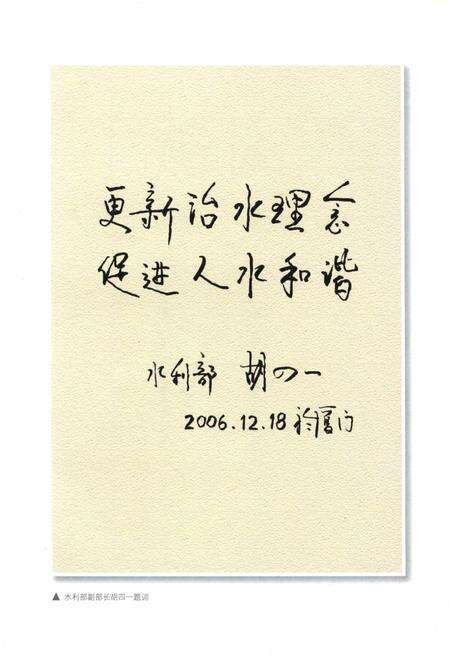 更新治水理念
促进人水和谐
水利部 胡四一
2006.12.18 於厦门
▲ 水利部副部长胡四一题词